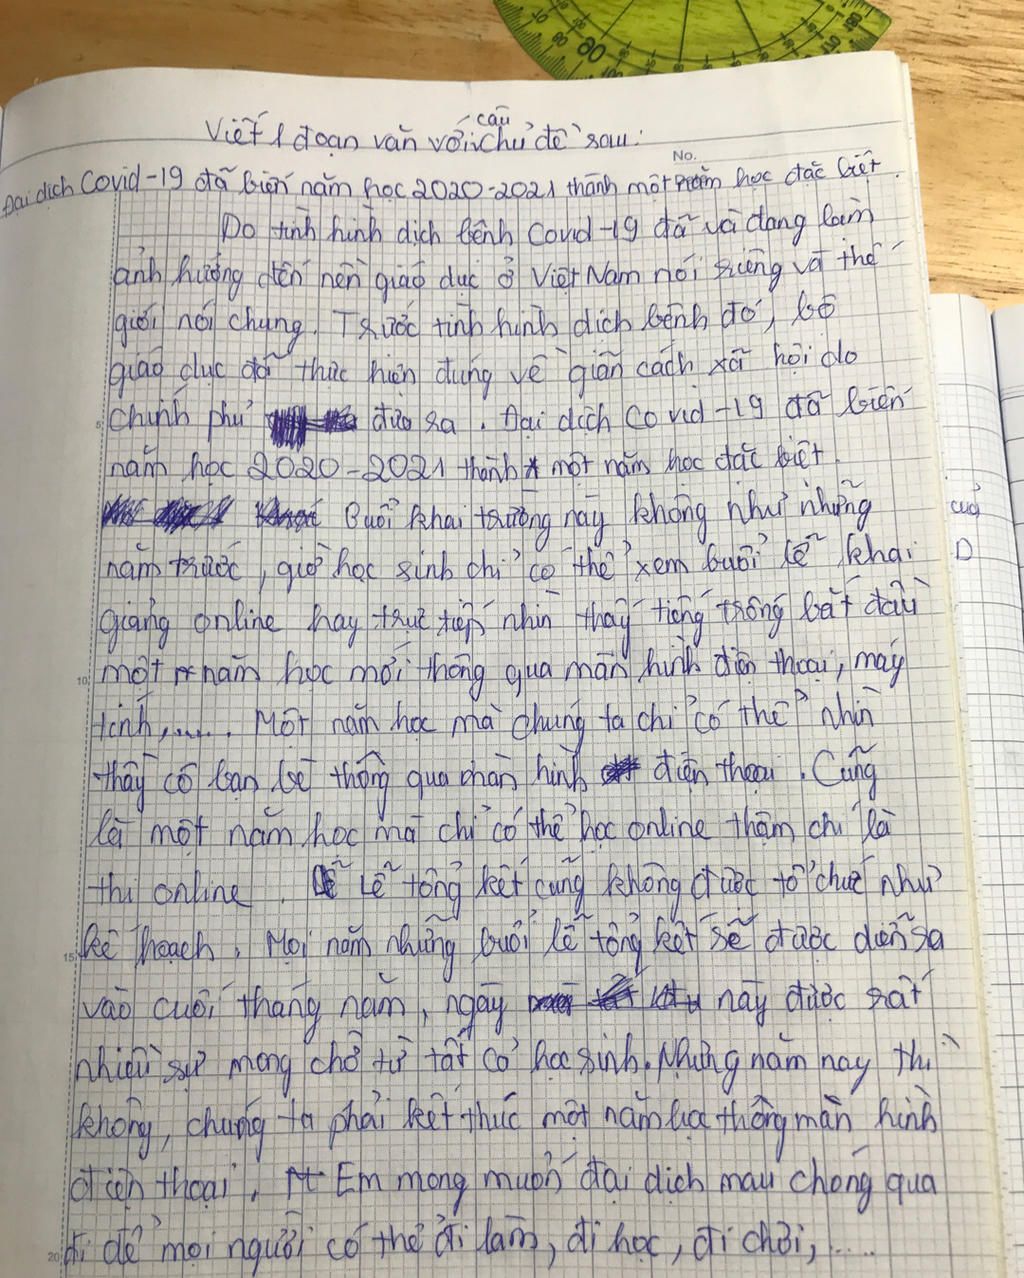 Viết 1 đoạn văn với câu chủ đề sau:
No.
Đại dịch Covid-19 đã biến năm học 2020-2021 thành một năm học đặc biệt.
Do tình hình dịch bệnh Covid-19 đã và đang làm
ảnh hưởng đến nền giáo dục ở Việt Nam nói riêng và thế
giới nói chung. Trước tình hình dịch bệnh đó, bộ
giáo dục đã thực hiện đúng về giãn cách xã hội do
5 chính phủ đưa ra. Đại dịch Covid-19 đã biến
năm học 2020-2021 thành một năm học đặc biệt.
Buổi khai trường này không như những
năm trước, giờ học sinh chỉ có thể xem buổi lễ khai
giảng online hay trực tiếp nhìn thấy tiếng trống bắt đầu
10 một năm học mới thông qua màn hình điện thoại, máy
tính,..... Một năm học mà chúng ta chỉ có thể nhìn
thấy cô bạn bè thông qua màn hình điện thoại. Cũng
là một năm học mà chỉ có thể học online thậm chí là
thi online. Lễ tổng kết cũng không được tổ chức như
15 kế hoạch. Mọi năm những buổi lễ tổng kết sẽ được diễn ra
vào cuối tháng năm, ngày này được rất
nhiều sự mong chờ từ tất cả học sinh. Nhưng năm nay thì
không, chúng ta phải kết thúc một năm học thông màn hình
điện thoại. Em mong muốn đại dịch mau chóng qua
20 đi để mọi người có thể đi làm, đi học, đi chơi,.....
của
D